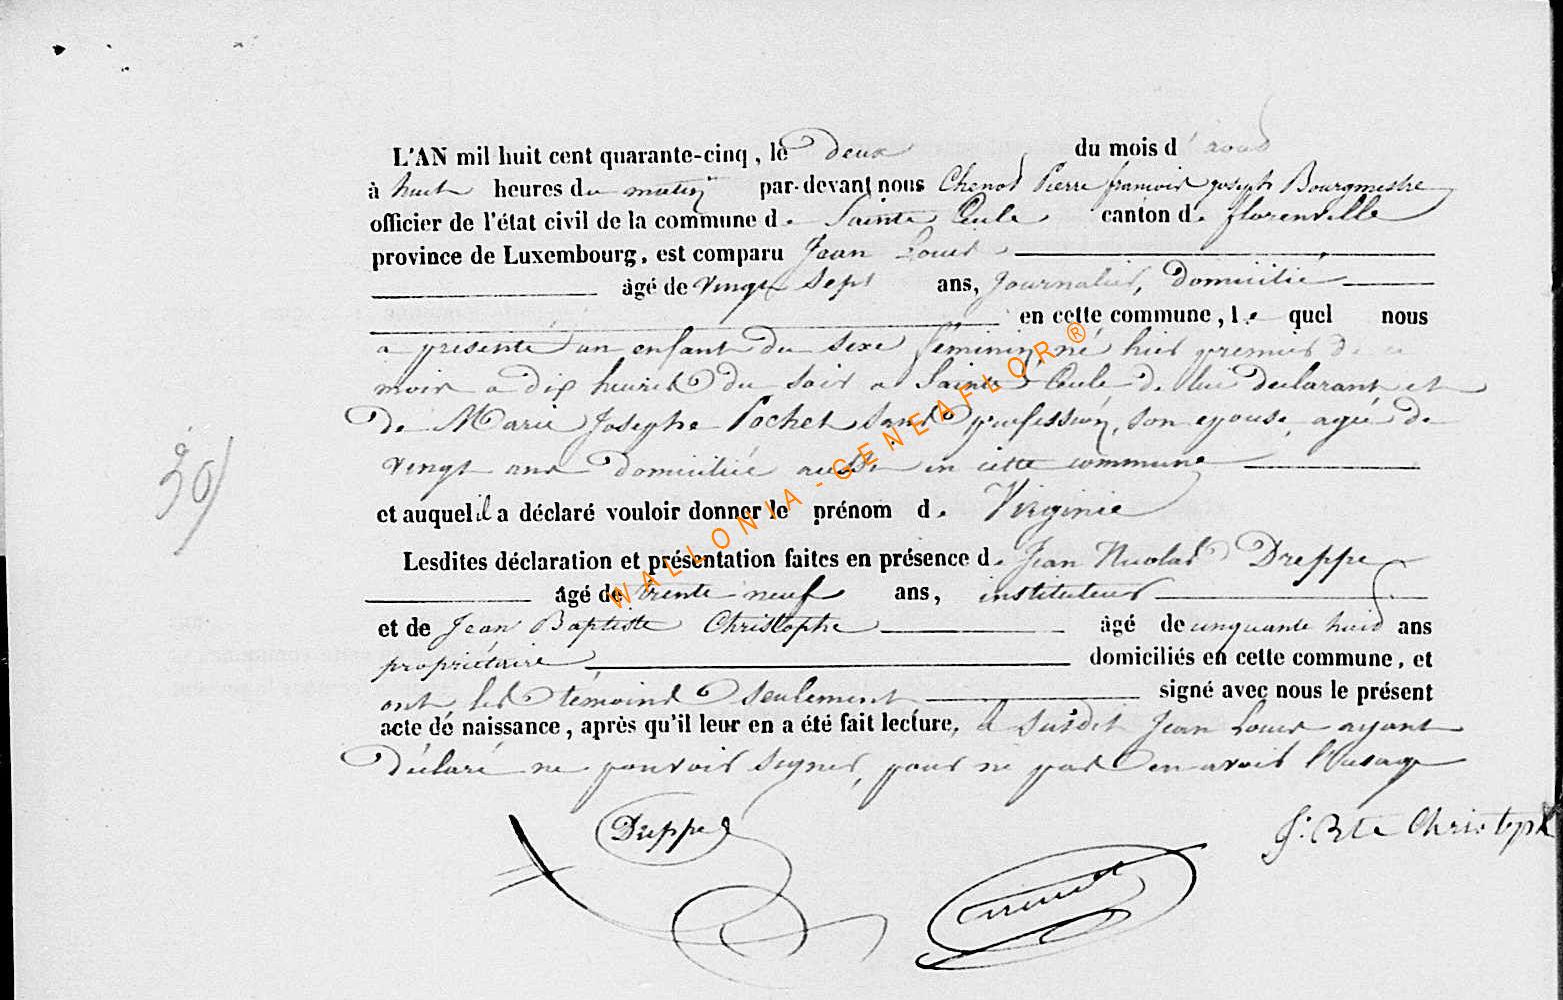 L'AN mil huit cent quarante-cinq, le deux du mois d'août
à huit heures du matin par-devant nous Chenot Pierre francois joseph Bourgmestre
officier de l'état civil de la commune de Sainte Cécile canton de florenville
province de Luxembourg, est comparu Jean Louis
âgé de vingt sept ans, Journalier, domicilié
en cette commune, le quel nous
a présenté un enfant du sexe féminin né hier premier de ce
mois a dix heures du soir a Sainte Cécile de lui declarant et
de Marie Josephe Pochet sans profession, son epouse, agée de
vingt ans domiciliée aussi en cette commune
et auquel il a déclaré vouloir donner le prénom de Virginie
Lesdites déclaration et présentation faites en présence de Jean Nicolas Dreppe
âgé de trente neuf ans, instituteur
et de Jean Baptiste Christophe âgé de cinquante huit ans
propriétaire domiciliés en cette commune, et
ont les témoins seulement signé avec nous le présent
acte de naissance, après qu'il leur en a été fait lecture, le susdit Jean Louis ayant
déclaré ne pouvoir signer, pour ne pas en avoir l'usage
30
Dreppe
J. Bte Christoph
WALLONIA - GENEAFLOR ®